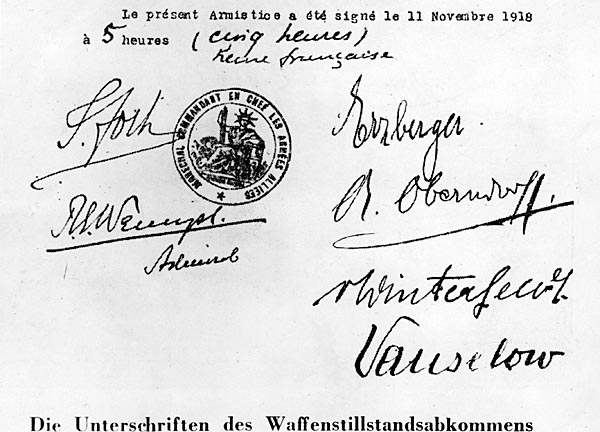 Le présent Armistice a été signé le 11 Novembre 1918
à 5 heures (cinq heures)
heure française
F. Foch
MARÉCHAL COMMANDANT EN CHEF LES ARMÉES ALLIÉES
R. E. Wemyss.
Admiral
Erzberger.
A. Oberndorff.
v Winterfeldt.
Vanselow
Die Unterschriften des Waffenstillstandsabkommens